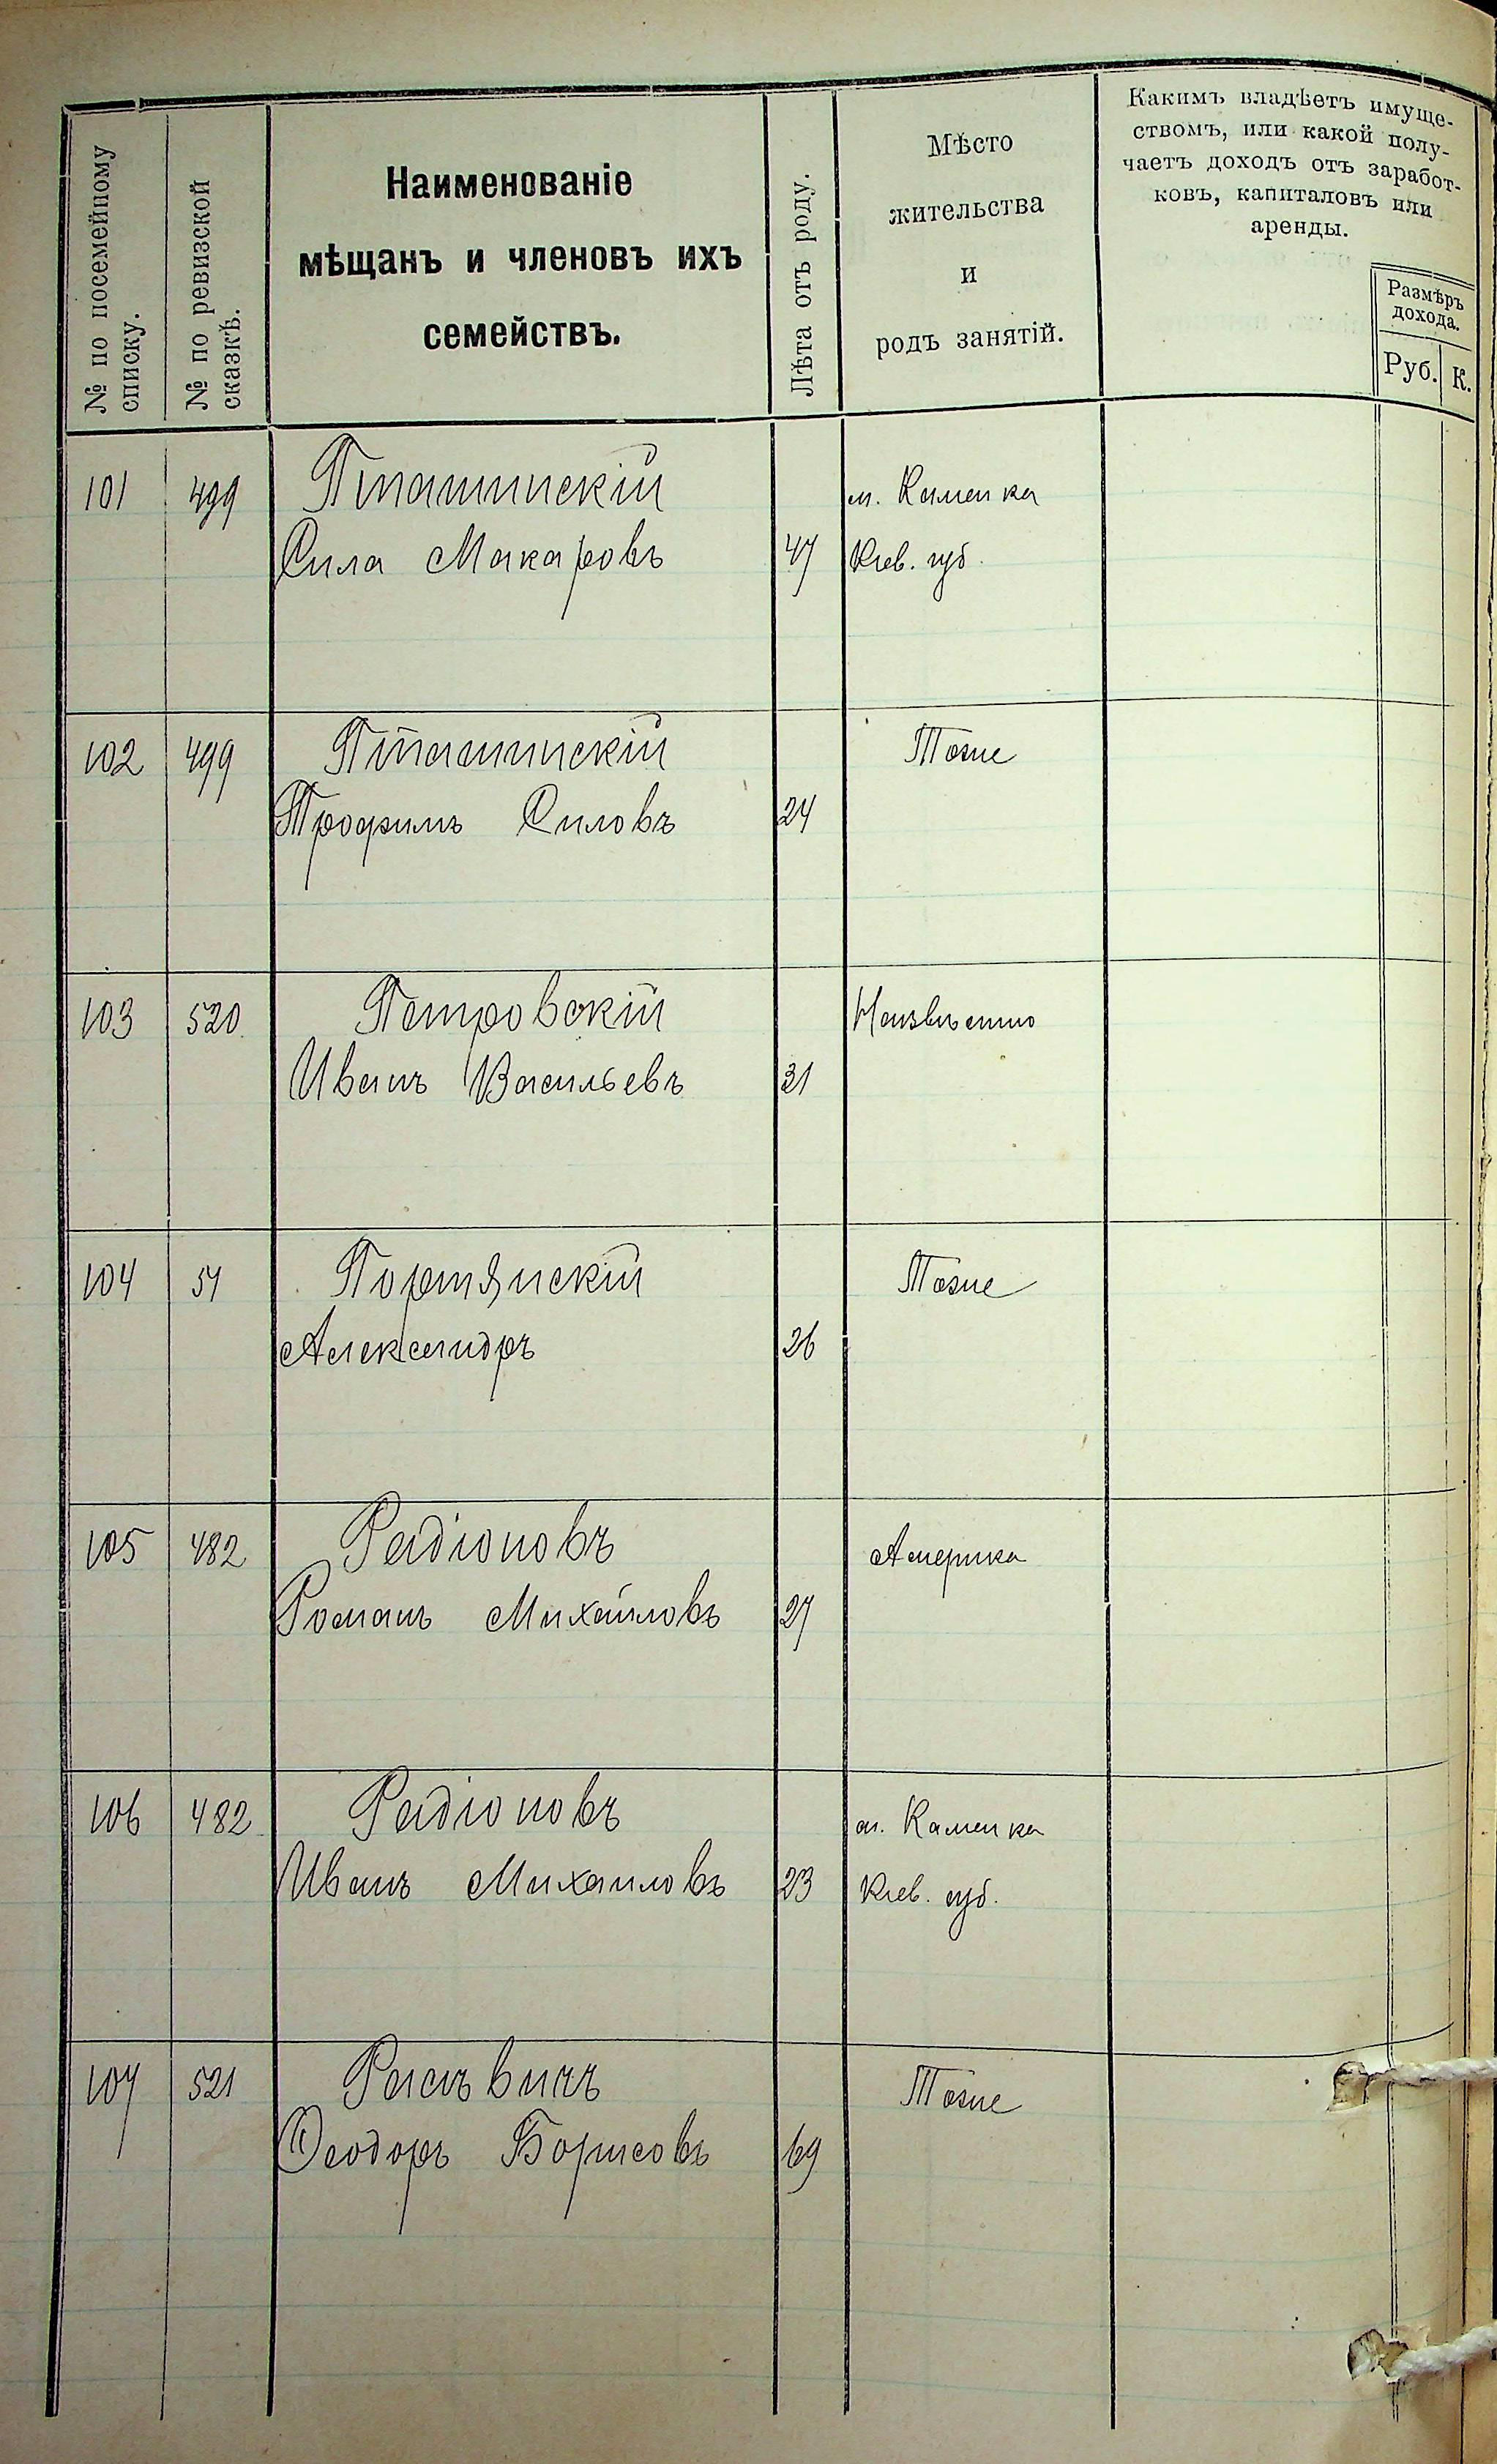 № по посемейному
списку.
№ по ревизской
сказкѣ.
Наименованіе
мѣщанъ и членовъ ихъ
семействъ.
Лѣта отъ роду.
Мѣсто
жительства
и
родъ занятій.
Какимъ владѣетъ имуще-
ствомъ, или какой полу-
чаетъ доходъ отъ заработ-
ковъ, капиталовъ или
аренды.
Размѣръ
дохода.
Руб. К.
101 499 Пташинскій м. Каменка
Сила Макаровъ 47 Кіев. губ.
102 499 Пташинскій Тоже
Трофимъ Силовъ 24
103 520 Петровскій Неизвѣстно
Иванъ Васильевъ 31
104 51 Портянскій Тоже
Александръ 26
105 482 Радіоновъ Америка
Романъ Михайловъ 27
106 482 Радіоновъ м. Каменка
Иванъ Михаиловъ 23 Кіев. губ.
107 521 Тоже
Ѳеодоръ Борисовъ 69